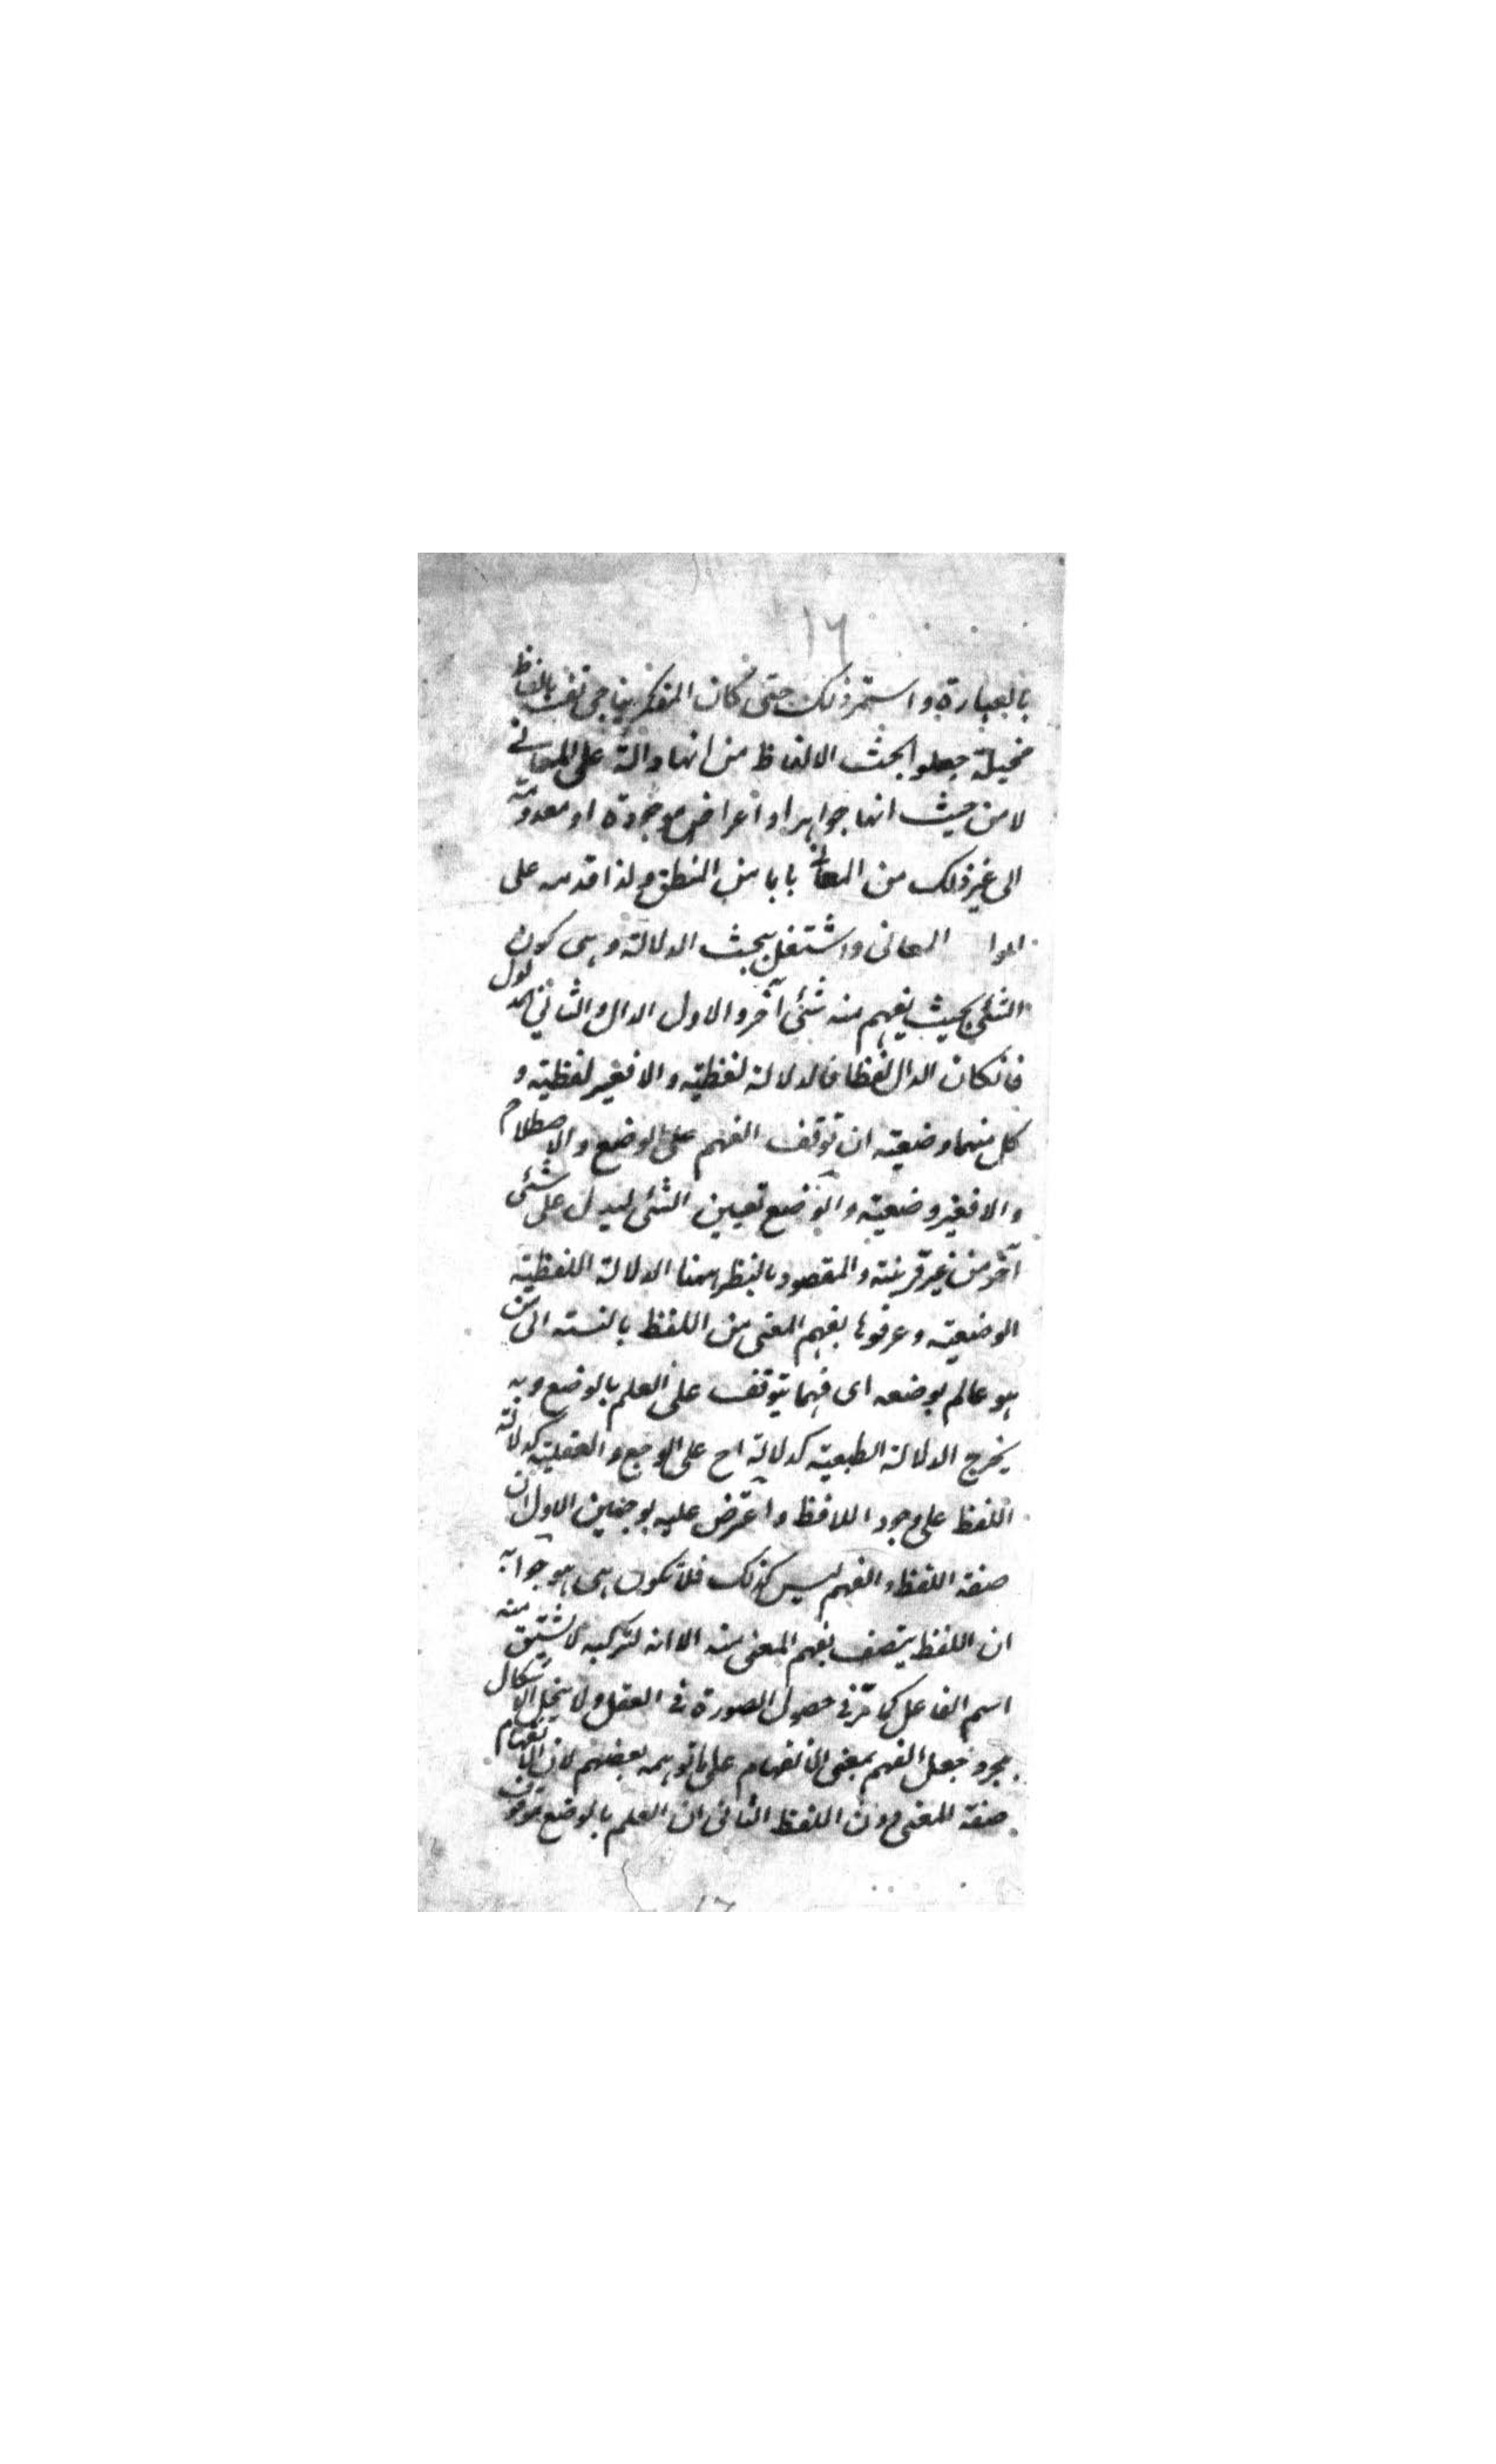 ١٦
بالعبارة واستمر ذلك حتى كان المتفكر يناجى نفسه بالفاظ
مخيلة جعلوا بحث الالفاظ من انها دالة على المعانى
لا من حيث انها جواهر او اعراض موجودة او معدومة
الى غير ذلك من المعانى بابا من المنطق ولذا قدمه على
المعانى واشتغل ببحث الدلالة وهى كون
الشئ بحيث يفهم منه شئ آخر والاول الدال والثانى المدلول
فانكان الدال لفظا فالدلالة لفظية والا فغير لفظية و
كل منهما وضعية ان توقف الفهم على الوضع والاصطلاح
والا فغير وضعية والوضع تعيين الشئ ليدل على شئ
آخر من غير قرينة والمقصود بالنظر ههنا الدلالة اللفظية
الوضعية وعرفوها بفهم المعنى من اللفظ بالنسبة الى من
هو عالم بوضعه اى فهما يتوقف على العلم بالوضع وبه
يخرج الدلالة الطبعية كدلالة اح على الوجع والعقلية كدلالة
اللفظ على وجود اللافظ واعترض عليه بوجهين الاول ان
صفة اللفظ والفهم ليس كذلك فلا تكون هى هو جوابه
ان اللفظ يتصف بفهم المعنى منه الا انه لتركبه لا يشتق منه
اسم الفاعل كما مر فى حصول الصورة فى العقل ولا ينحل الاشكال
بمجرد جعل الفهم بمعنى الانفهام على ما توهمه بعضهم لان الانفهام
صفة المعنى دون اللفظ الثانى ان العلم بالوضع موقوف